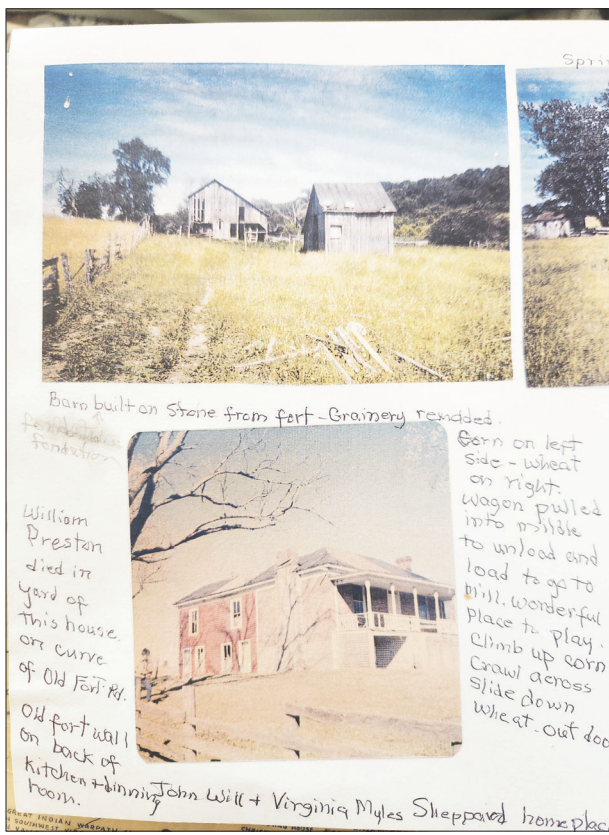 Sprin
Barn built on stone from fort - Grainery remodled.
fondation
Corn on left
side - wheat
on right.
Wagon pulled
into middle
to unload and
load to go to
mill. Wonderful
place to play.
Climb up corn
Crawl across
slide down
wheat. out doo
William
Preston
died in
yard of
this house
on curve
of Old Fort Rd.
Old fort wall
on back of
kitchen + dinning
room.
John Will + Virginia Myles Sheppard homeplac
GREAT INDIAN WARPATH
SOUTHWEST